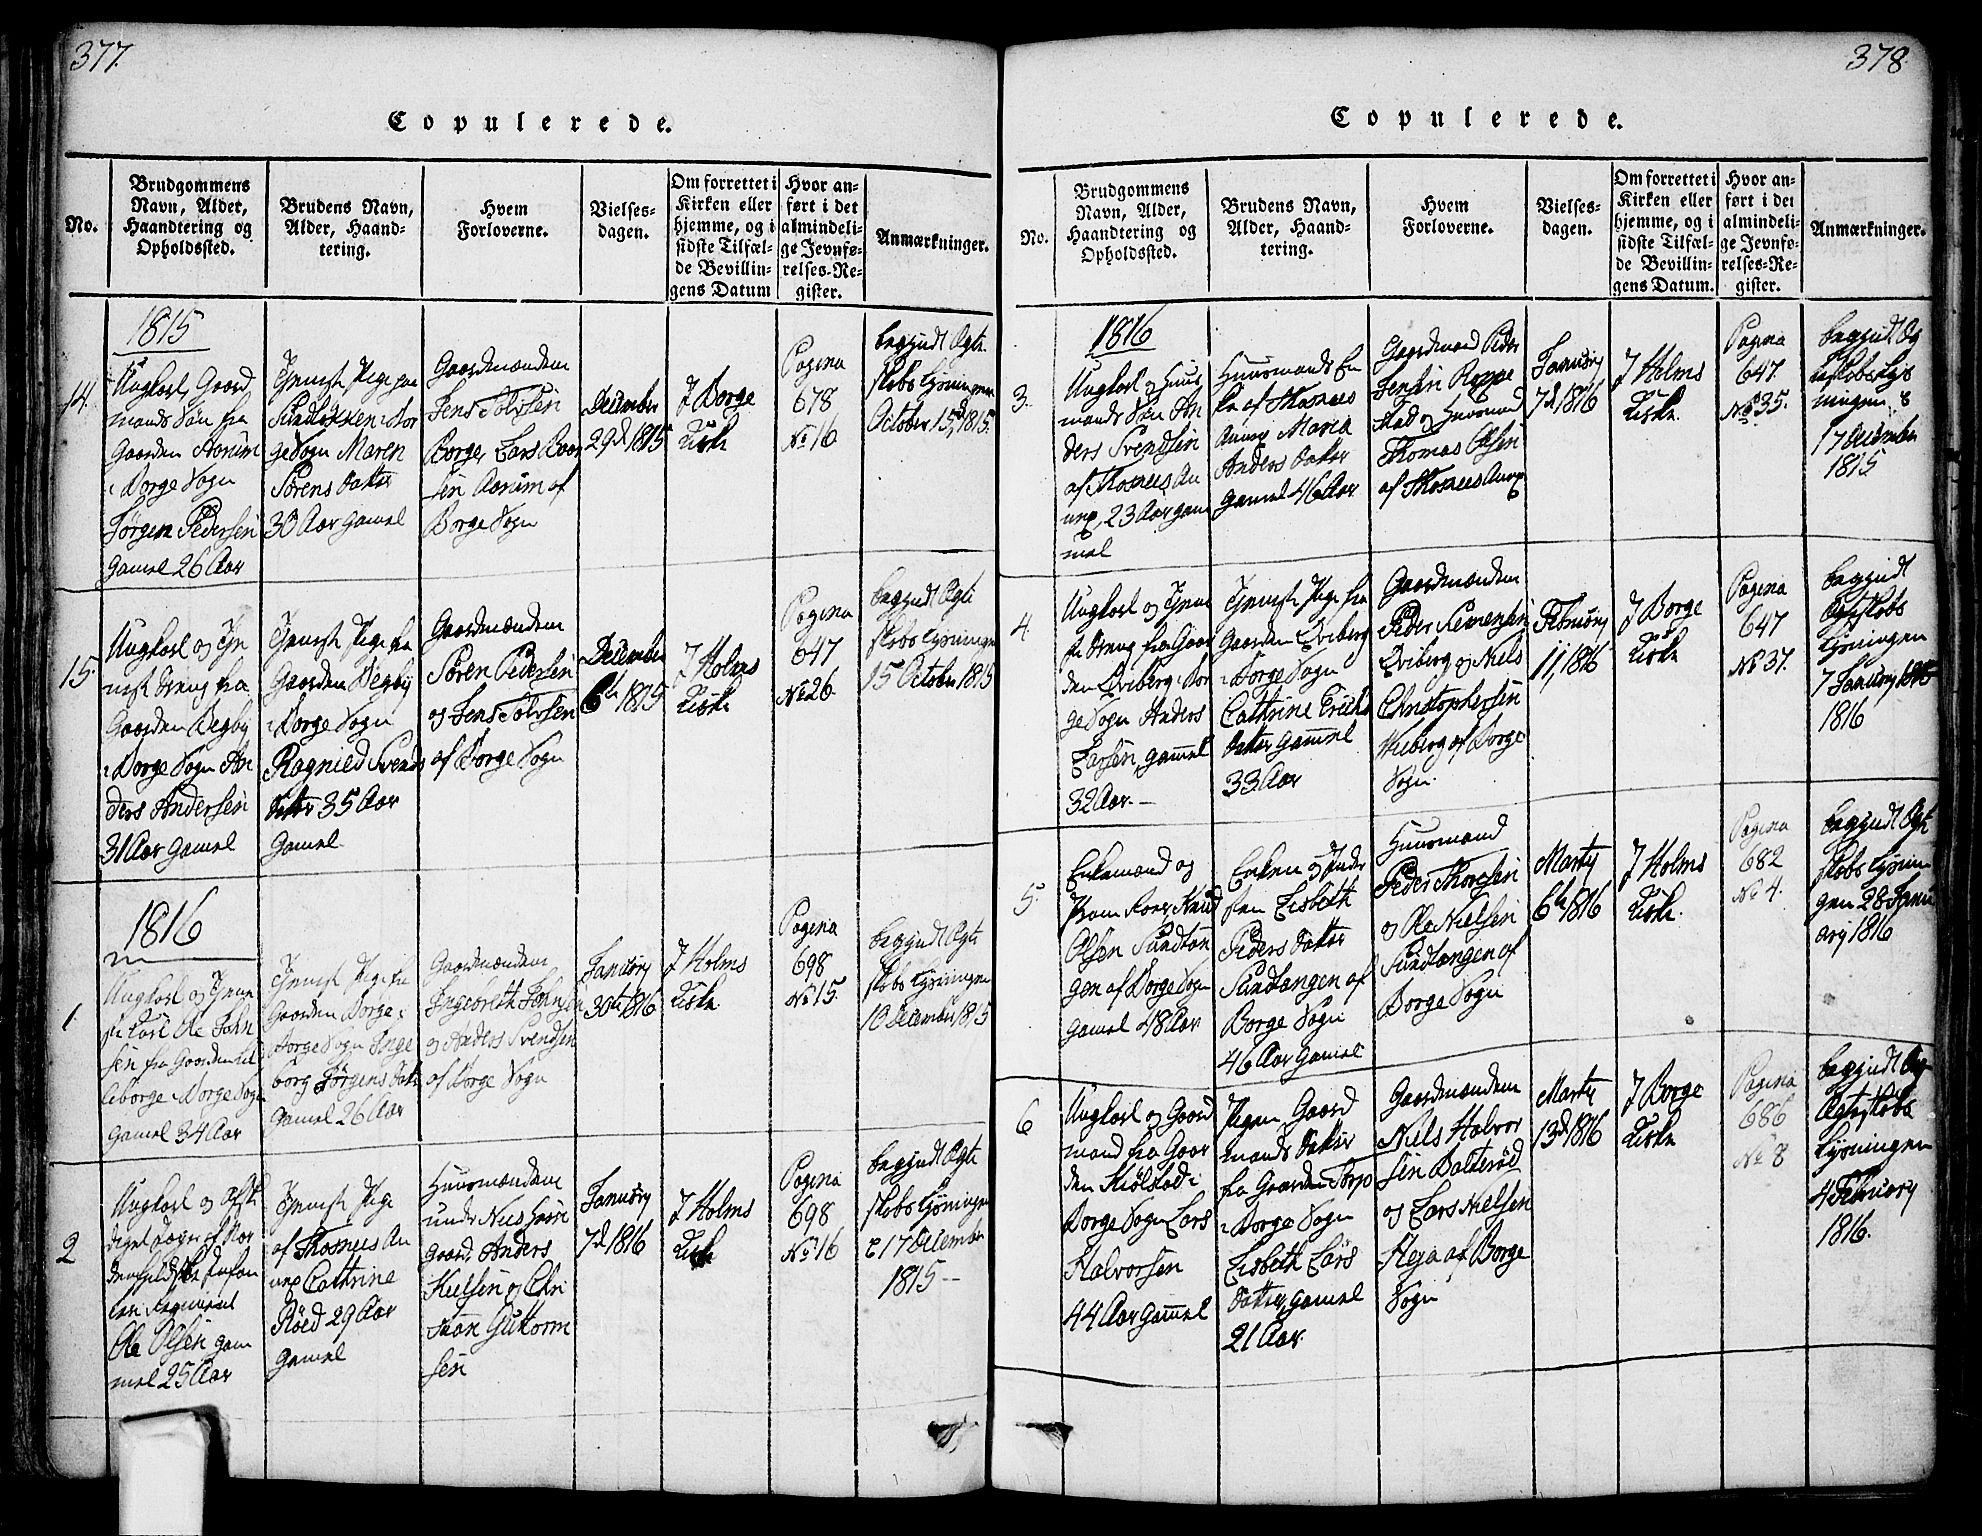 377.
Copulerede.
No.
Brudgommens
Navn, Alder,
Haandtering og
Opholdssted.
Brudens Navn,
Alder, Haand-
tering.
Hvem
Forloverne.
Vielses-
dagen.
Om forrettet i
Kirken eller
hjemme, og i
sidste Tilfæl-
de Bevillin-
gens Datum
Hvor an-
ført i det
almindeli-
ge Jevnfø-
relses-Re-
gister.
Anmærkninger.
1815
14.
Ungkarl, Gaard
mands Søn fra
Gaarden Aarum
i Borge Sogn
Jørgen Pedersen
gamel 26 Aar
Tjeneste Pige paa
Sundløkken i Bor
ge Sogn Maren
Sørens Datter
30 Aar gamel
Gaardmændene
Jens Tolvsen
Borge, Lars Baar
sen Aarum af
Borge Sogn
December
29d 1815
I Borge
Kirke
Pagina
678
No 16
begyndt Ægte
skabs Lysningen
October 15d 1815.
15.
Ungkarl og Tje
neste Dreng fra
Gaarden Begby
i Borge Sogn An
ders Andersen
31 Aar gamel
Tjeneste Pige fra
Gaarden Begby
i Borge Sogn
Ragnild Svends
Datter 35 Aar
Gamel
Gaardmændene
Søren Pedersen
og Jens Tolvsen
af Borge Sogn
December
6te 1815
I Holms
Kirke
Pagina
647
No 26
begyndt Ægte
skabs Lysningen
15 October 1815
1816
1.
Ungkarl og Tjene
ste Karl Ole John
sen fra Gaarden Lil
leborge i Borge Sogn
gamel 34 Aar
Tjeneste Pige fra
Gaarden Borge i
Borge Sogn Inge
borg Jørgens Datr
Gamel 26 Aar
Gaardmændene
Ingebreth Johnsen
og Anders Svendsen
af Borge Sogn
Januarj
30te 1816
I Holms
Kirke
Pagina
698
No 15.
begyndt Ægte
skabs Lysningen
10 December 1815
2
Ungkarl og Afske
diget Jæger af Nor
denfjeldske Infan
teri Regiment
Ole Olsen gam
mel 25 Aar
Tjeneste Pige
af Thosnæs An
nex Cathrine
Röed 29 Aar
gamel
Huusmændene
under
Gaard, Anders
Keelsen og Chri
stian Guttorm
sen
Januarj
7d 1816
I Holms
Kirke
Pagina
698
No 16
begyndt Ægte
skabs Lysningen
17 December
1815 –
378.
Copulerede.
No.
Brudgommens
Navn, Alder,
Haandtering og
Opholdssted.
Brudens Navn,
Alder, Haand-
tering.
Hvem
Forloverne.
Vielses-
dagen.
Om forrettet i
Kirken eller
hjemme, og i
sidste Tilfæl-
de Bevillin-
gens Datum.
Hvor an-
ført i det
almindeli-
ge Jevnfø-
relses-Re-
gister.
Anmærkninger.
1816
3.
Ungkarl og Huus
mands Søn An
ders Svendsen
af Thosnæs An
nex, 23 Aar gam
mel
Huusmands En
ke af Thosnæs
Annex Maria
Anders Datter
gamel 46 Aar
Gaardmand Peder
Jensen Roppe
stad og Huusmand
Thomas Olsen
af Thosnæs Annex
Januarj
7d 1816
I Holms
Kirke
Pagina
647.
No 35.
begyndt Æg
teskabs Lys
ningen
17 December
1815
4
Ungkarl og Tjene
ste Dreng fra Gaar
den Qviberg i Bor
ge Sogn Anders
Larsen, gammel
32 Aar. –
Tjeneste Pige fra
Gaarden Qviberg
i Borge Sogn
Cathrine Erichs
Datter gammel
33 Aar
Gaardmændene
Peder Sørensen
Qviberg og Niels
Christophersen
Viiberg af Borge
Sogn.
Februarj
11, 1816
I Borge
Kirke
Pagina
647
No 37.
begyndt
Ægteskabs
Lysningen
7 Januarj 1815
1816
5.
Enkemand og
Knud
Olsen Sundtan
gen af Borge Sogn
gamel 48 Aar
Enken og Inder
sten Lisbeth
Peders Datter
Sundtangen af
Borge Sogn
46 Aar Gamel
Huusmand
Peder Thoresen
og Ole Nielsen
Sundtangen af
Borge Sogn
Martj
6te 1816
I Holms
Kirke.
Pagina
682
No 4.
begyndt Ægte
skabs Lysnin
gen 28 Janu
arj 1816
6
Ungkarl og Gaard
mand fra Gaar
den Kiölstad i
Borge Sogn Lars
Halvorsen
44 Aar Gammel
Pigen, Gaard
mands Datter
fra Gaarden Torp
i Borge Sogn
Lisbeth Lars
Datter, gamel
21 Aar.
Gaardmændene
Niels Halvor
sen Dalteröd
og Lars Nielsen
Heja af Borge
Sogn
Martj
13d 1816
I Borge
Kirke
Pagina
686
No 8
begyndt
Ægteskabs
Lysningen
4 Februarj
1816.